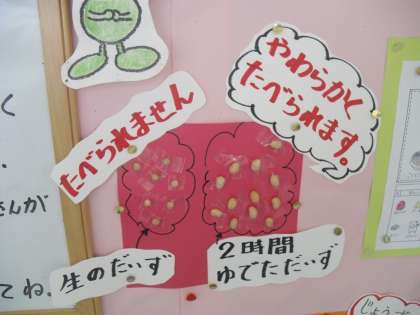 たべられません
やわらかく
たべられます。
生のだいず
2時間
ゆでただいず
く
さんが
てね。
じょう